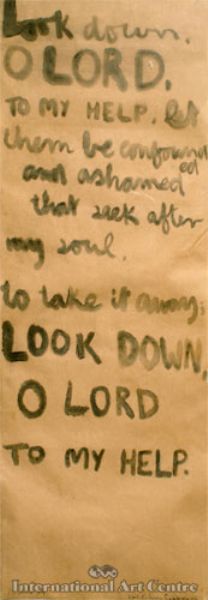 Look down,
O LORD,
TO MY HELP. let
them be confound
ed
and ashamed
that seek after
my soul.
to take it away;
LOOK DOWN,
O LORD
TO MY HELP.
International Art Centre